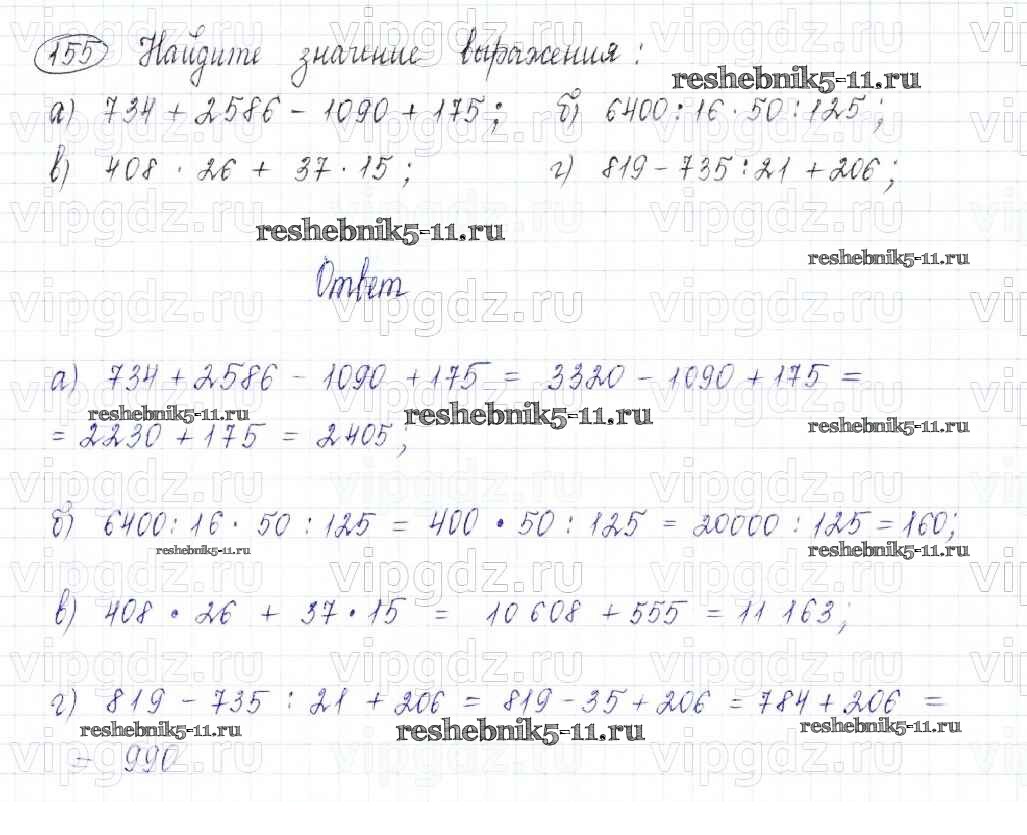 155 Найдите значение выражения:
reshebnik5-11.ru
а) 734 + 2586 - 1090 + 175; б) 6400 : 16 · 50 : 125;
в) 408 · 26 + 37 · 15; г) 819 - 735 : 21 + 206;
reshebnik5-11.ru
reshebnik5-11.ru
Ответ
а) 734 + 2586 - 1090 + 175 = 3320 - 1090 + 175 =
reshebnik5-11.ru reshebnik5-11.ru reshebnik5-11.ru
= 2230 + 175 = 2405;
б) 6400 : 16 · 50 : 125 = 400 · 50 : 125 = 20000 : 125 = 160;
reshebnik5-11.ru reshebnik5-11.ru
в) 408 · 26 + 37 · 15 = 10 608 + 555 = 11 163;
г) 819 - 735 : 21 + 206 = 819 - 35 + 206 = 784 + 206 =
reshebnik5-11.ru reshebnik5-11.ru reshebnik5-11.ru
= 990
vipgdz.ru